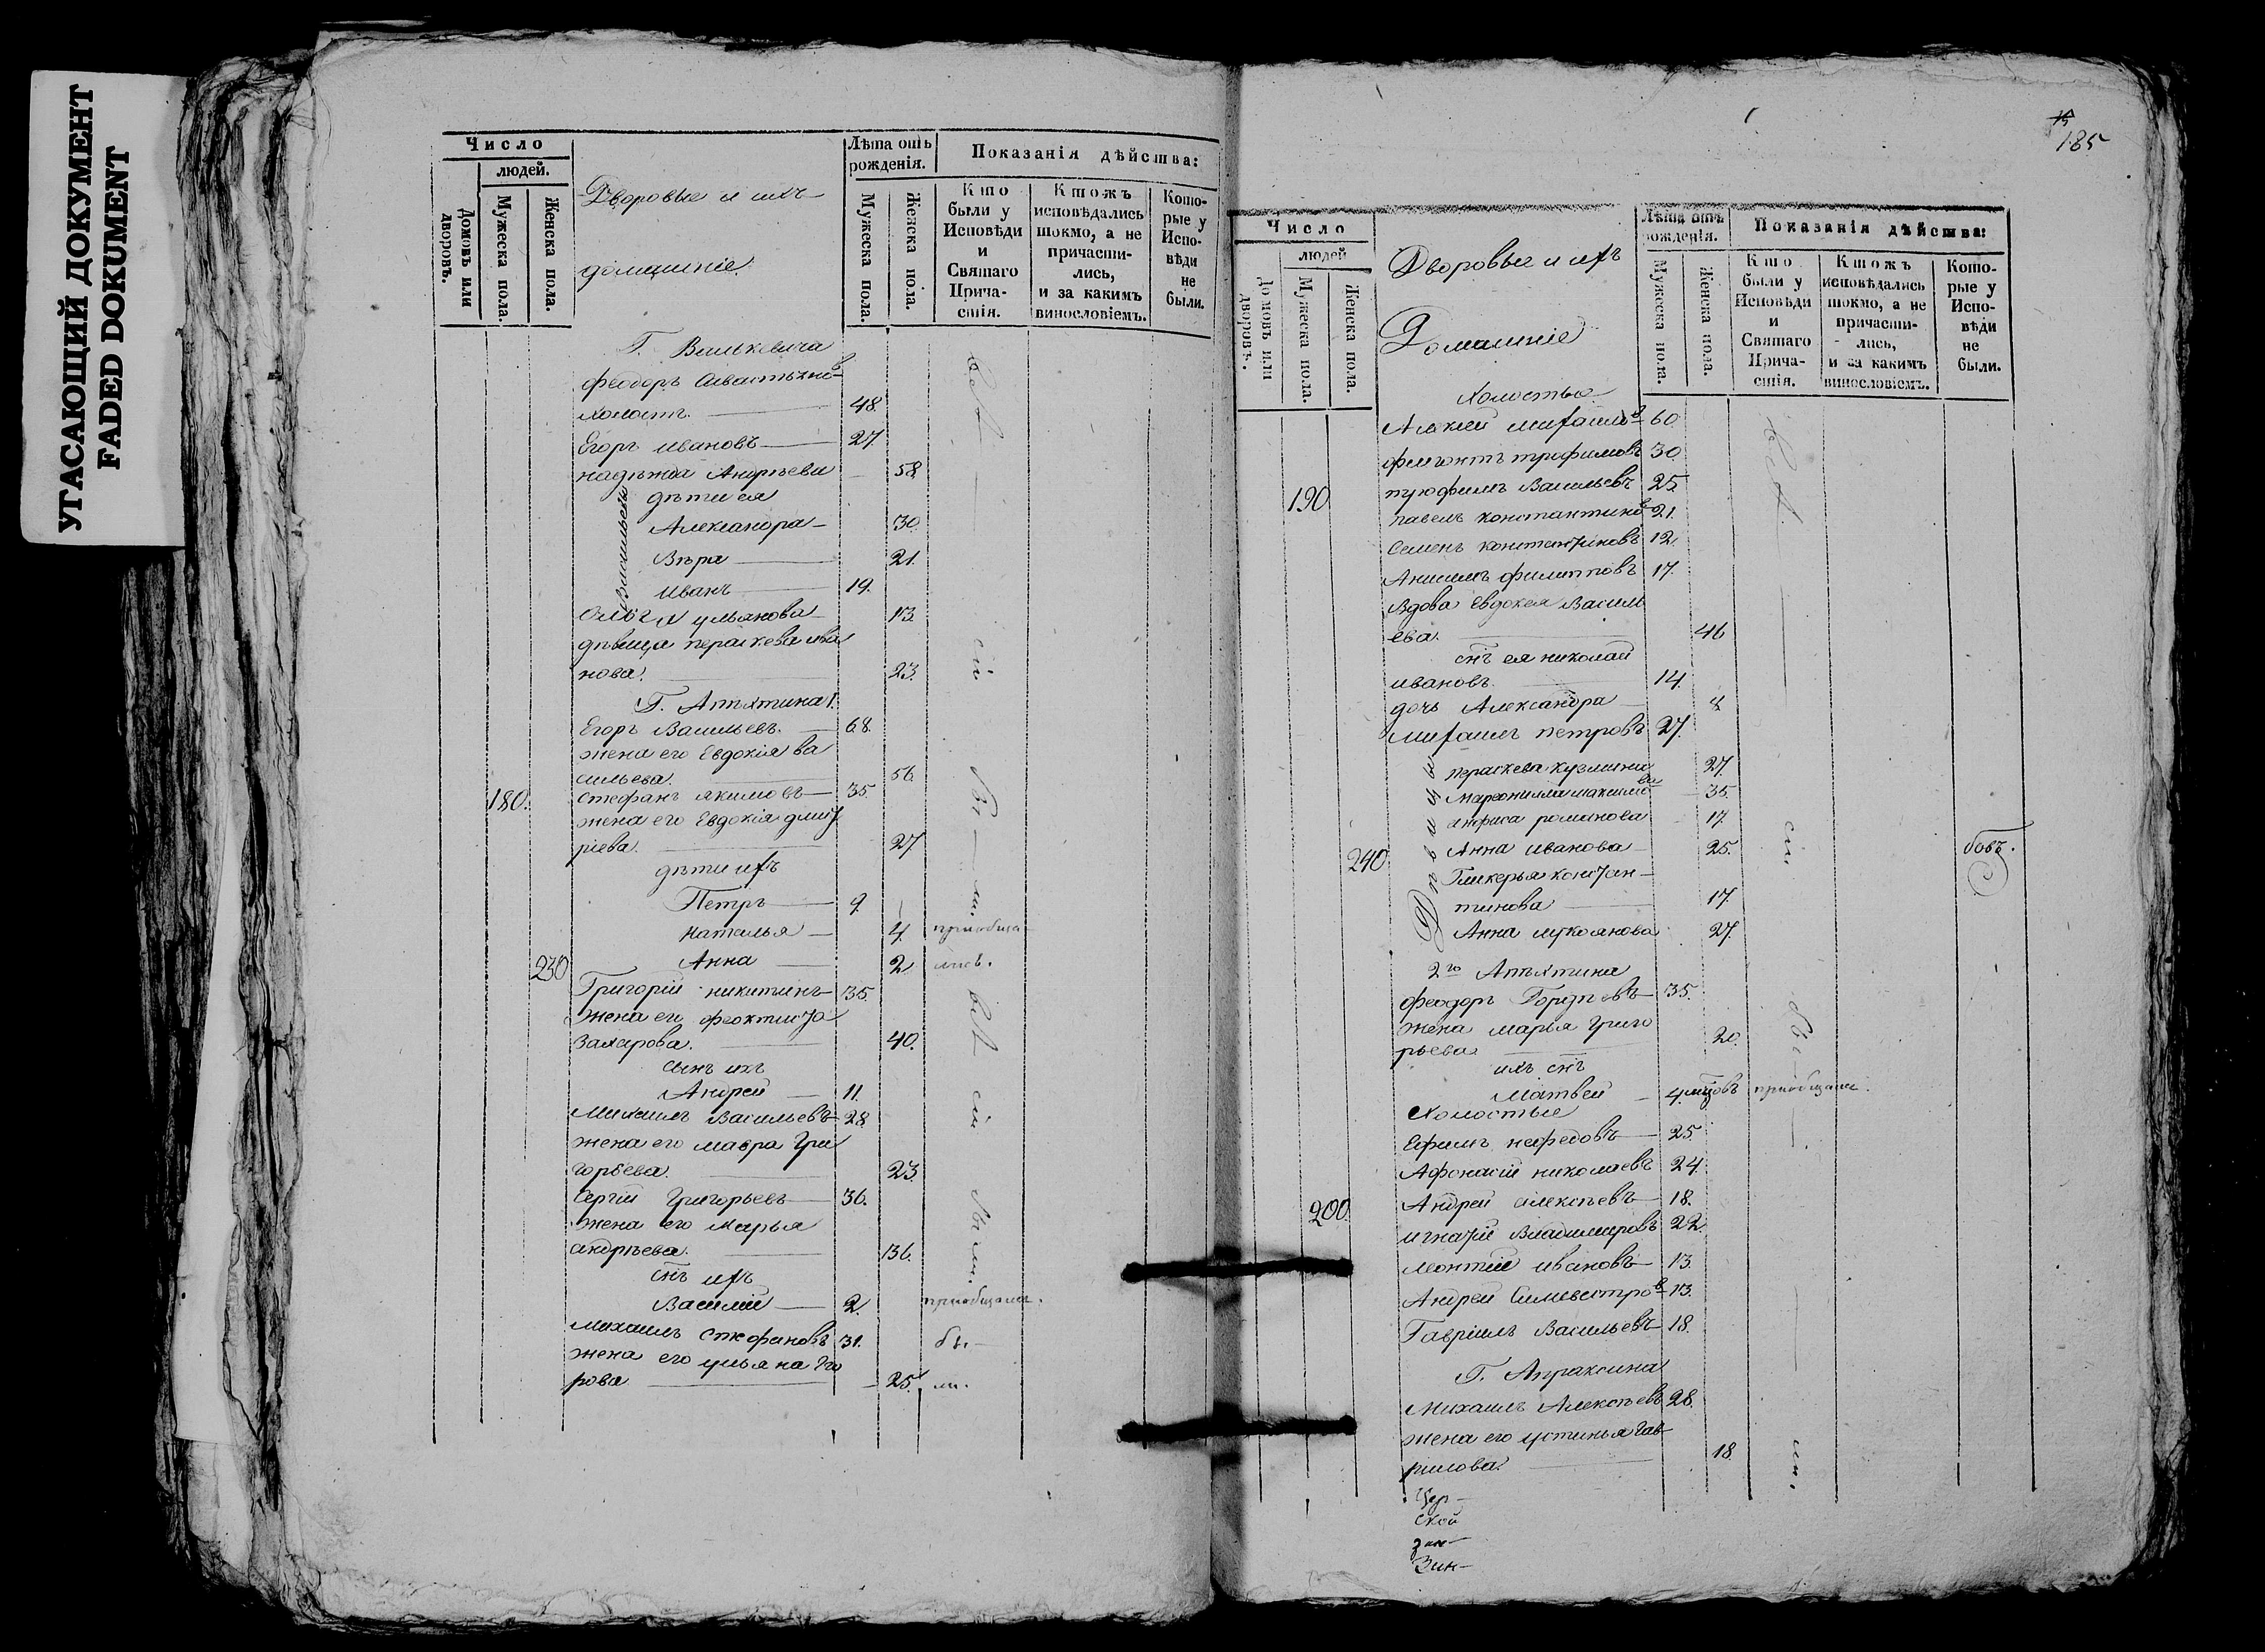 УГАСАЮЩИЙ ДОКУМЕНТ
FADED DOKUMENT
Число
людей.
Домовъ или дворовъ.
Мужеска пола.
Женска пола.
Дворовые и ихъ
домашніе.
Лѣта отъ рожденія.
Мужеска пола.
Женска пола.
Показанія дѣйства:
Кто были у Исповѣди и Святаго Прича-стія.
Ктожъ исповѣдались токмо, а не причасти-лись, и за какимъ винословіемъ.
Кото-рые у Испо-вѣди не были.
Г. Вилькевича
феодоръ
холостъ. 48
Егоръ ивановъ 27
надѣжда Андрѣева 58
дѣти ея
Васильевы
Александра 30
Вѣра 21.
иванъ 19.
Ольга ульянова 13
дѣвица пераскева ива
нова. 23
Г. Апѣхтина 1.
Егоръ Васильевъ. 68.
жена его Евдокія ва
сильева. 56
180. стефанъ якимовъ 35
жена его Евдокія дмит
ріева. 27
дѣти ихъ
Петръ 9.
наталья 4. приобща-
230 Анна 2 лись.
Григорій никитинъ 35.
жена его феоктиста
Захарова. 40.
сынъ ихъ
Андрей 11.
Михаилъ Васильевъ 28
жена его мавра Гри
горьева. 23.
Сергій Григорьевъ 36.
жена его Марья
андрѣева. 36.
снъ ихъ
Василій 2. приобщали.
михаилъ стефановъ 31. бы-
жена его ульяна Его
рова 25. ли.
всѣ
сіи
бы-ли.
всѣ
сіи
были.
185
Число
людей
Домовъ или дворовъ.
Мужеска пола.
Женска пола.
Дворовые и ихъ
Домашніе
Лѣта отъ рожденія.
Мужеска пола.
Женска пола.
Показанія дѣйства:
Кто были у Исповѣди и Святаго Прича-стія.
Ктожъ исповѣдались токмо, а не причасти-лись, и за какимъ винословіемъ.
Кото-рые у Испо-вѣди не были.
Холостые
Алексей михаиловъ 60
филонтъ трофимовъ 30
190 трофимъ Васильевъ 25
павелъ константиновъ 21.
Семенъ константиновъ 12.
Анисимъ филипповъ 17.
Вдова Евдокея Василь
ева. 46
снъ ея николай
ивановъ. 14.
дочь Александра 8
михаилъ петровъ 27.
Дѣвицы
пераскева кузмина 27.
маремьяна максимова 35.
анфиса романова 17
240. Анна иванова 25.
Гликерья констан-
тинова 17.
Анна лукоянова 27.
2го Апѣхтина
феодоръ Гордѣевъ 35.
жена марья Григо
рьева 20.
ихъ снъ
Матвей 4. мцовъ приобщали.
Холостые
Ефимъ нефедовъ 25.
Афонасій николаевъ 24.
200. Андрей алексѣевъ 18.
игнатій Владимировъ 22.
леонтій ивановъ 13.
Андрей Сильвестровъ 13.
Гавріилъ Васильевъ 18.
Г. Апраксина
Михаилъ Алексѣевъ 28.
жена его устинья Гав
рилова. 18.
всѣ
сіи
бы-
ли.
Цер-
ской
Зин-